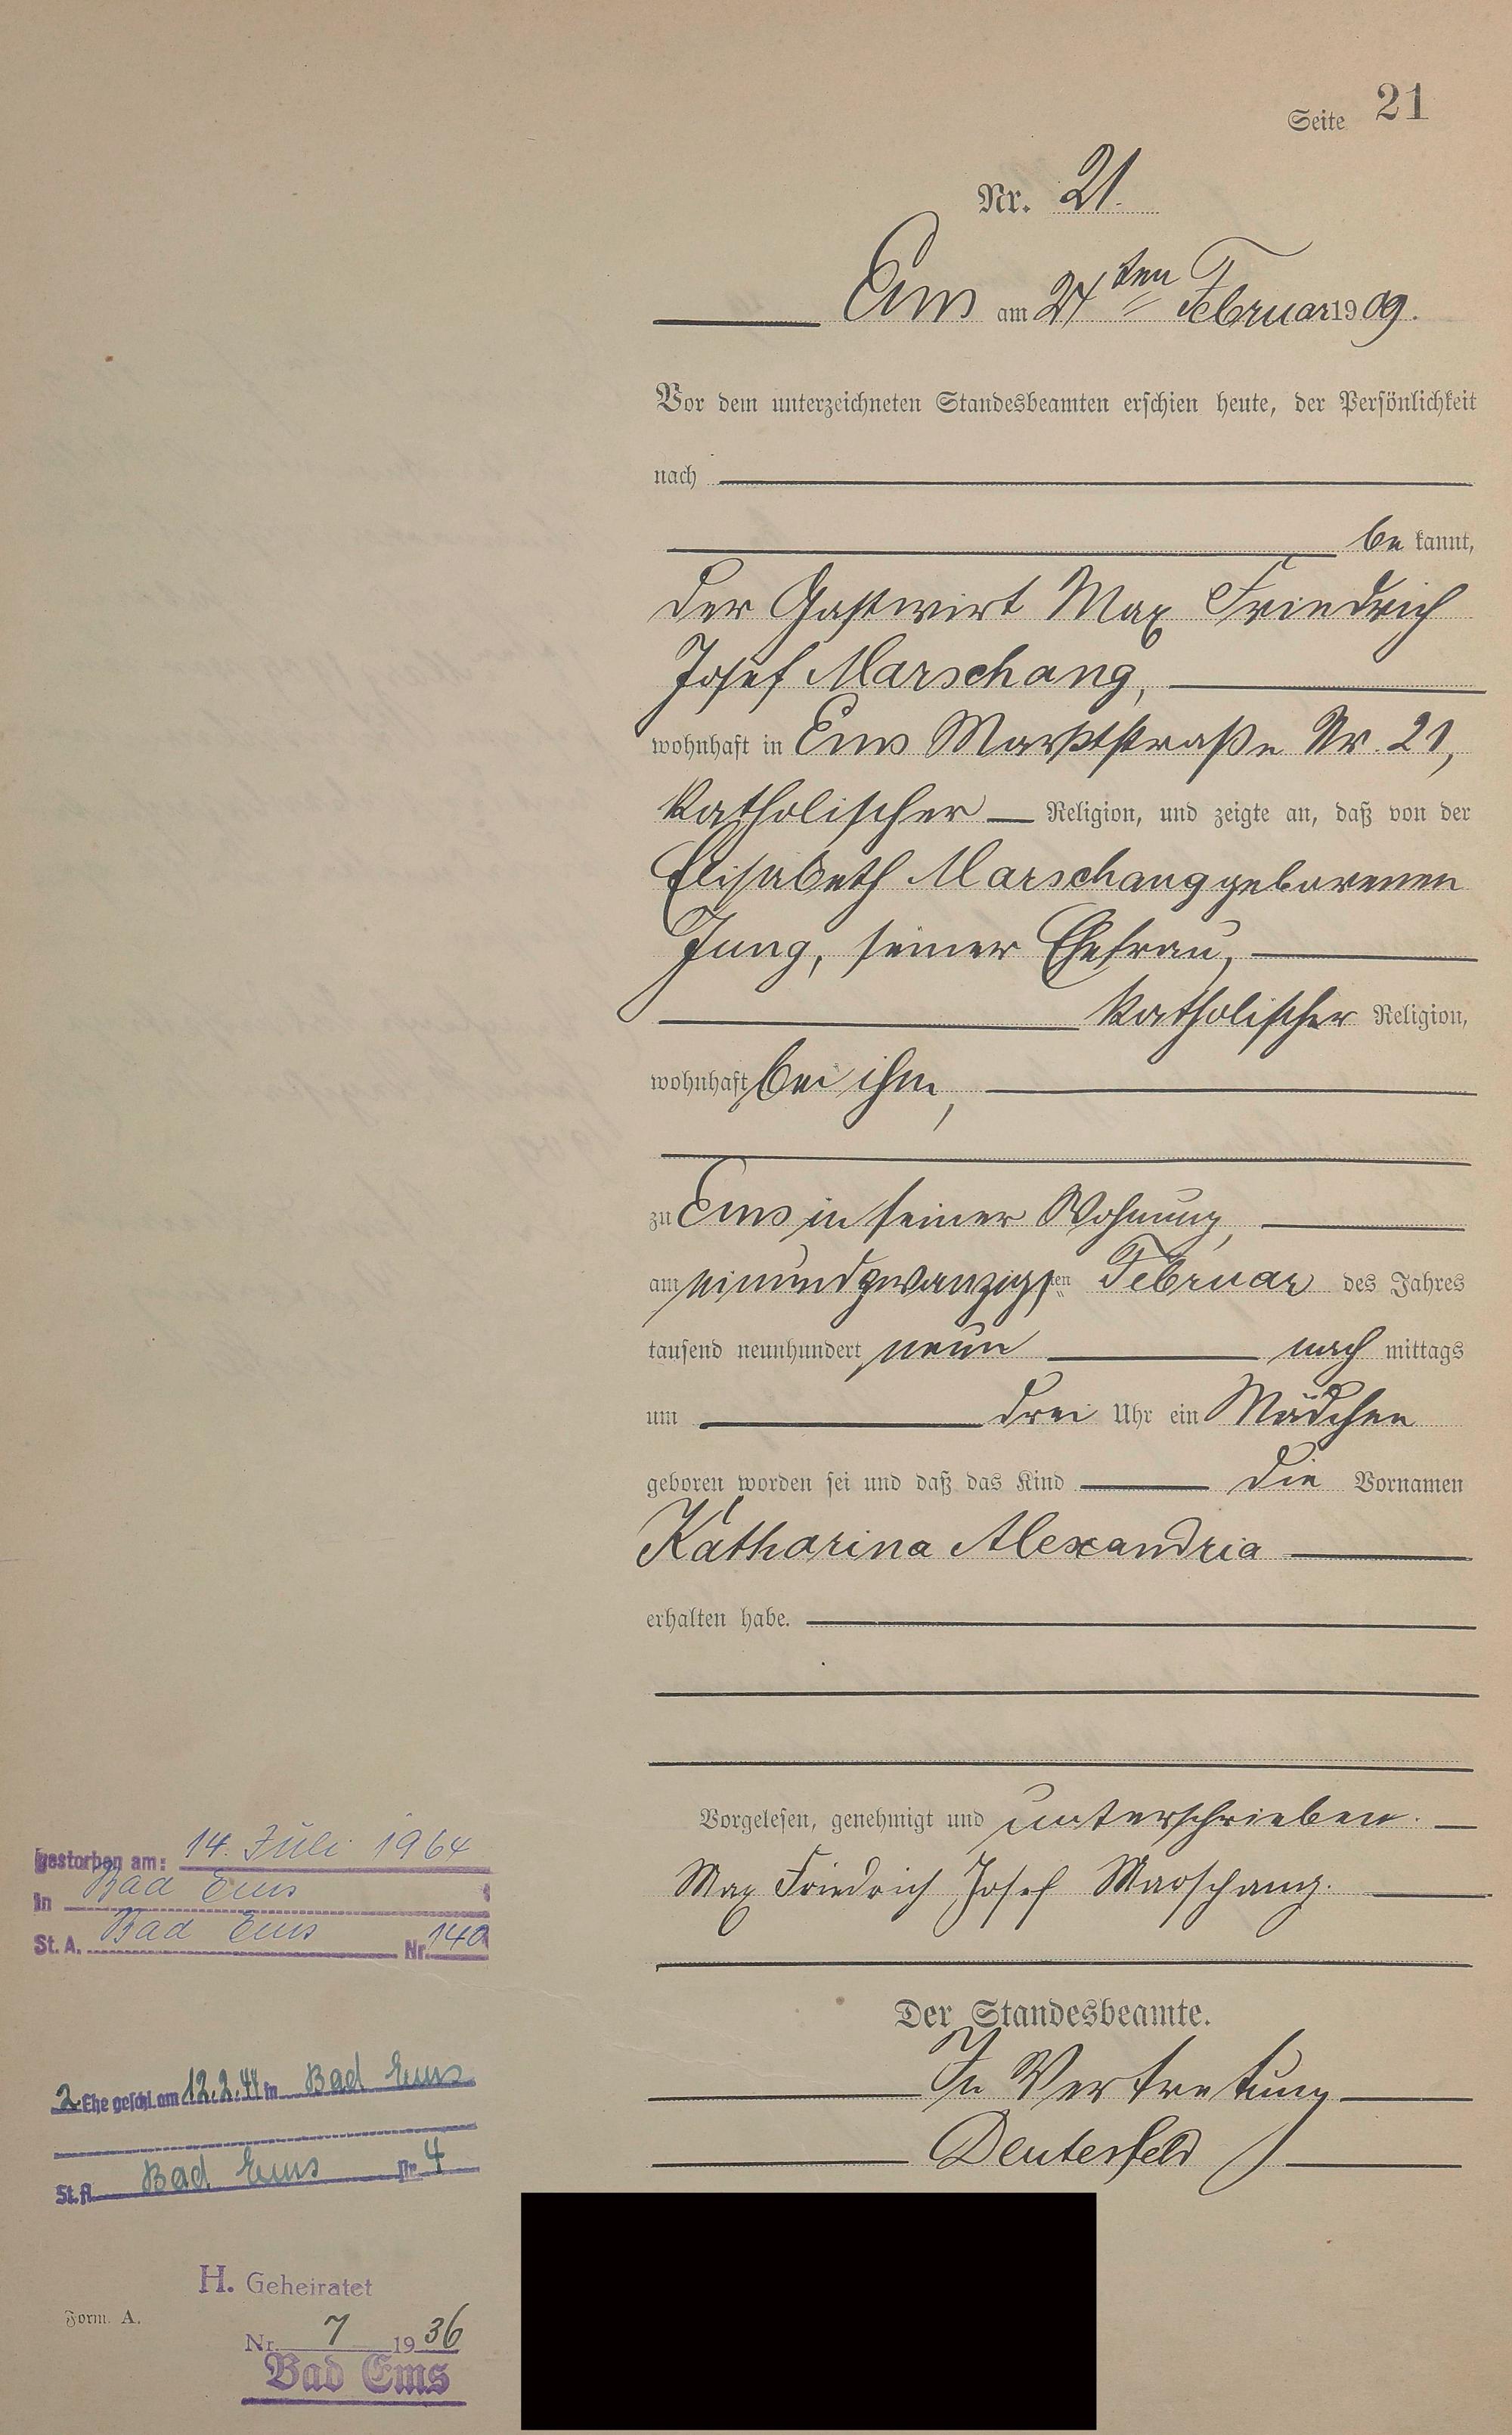 Seite 21
Nr. 21.
Ems am 24ten Februar 1909.
Vor dem unterzeichneten Standesbeamten erschien heute, der Persönlichkeit
nach
be kannt,
der Gastwirt Max Friedrich
Josef Marschang,
wohnhaft in Ems Marktstraße Nr. 21,
katholischer Religion, und zeigte an, daß von der
Elisabeth Marschang geborenen
Jung, seiner Ehefrau,
katholischer Religion,
wohnhaft bei ihm,
zu Ems in seiner Wohnung,
am einundzwanzigsten Februar des Jahres
tausend neunhundert neun nach mittags
um drei Uhr ein Mädchen
geboren worden sei und daß das Kind die Vornamen
Katharina Alexandria
erhalten habe.
Vorgelesen, genehmigt und unterschrieben.
Max Friedrich Josef Marschang.
Der Standesbeamte.
In Vertretung
Deuterfeld
gestorben am: 14. Juli 1964
in Bad Ems
St. A. Bad Ems Nr. 140
2. Ehe geschl. am 12.2.44 in Bad Ems
St. A. Bad Ems Nr. 4
H. Geheiratet
Form. A.
Nr. 7 1936
Bad Ems